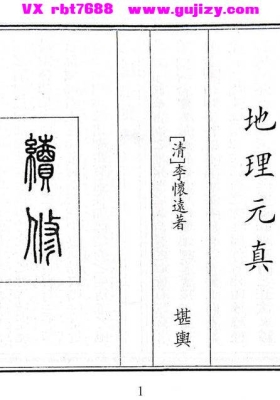 VX rbt7688 www.gujizy.com
地理元真
[清]李懷遠著
堪輿
續修
1